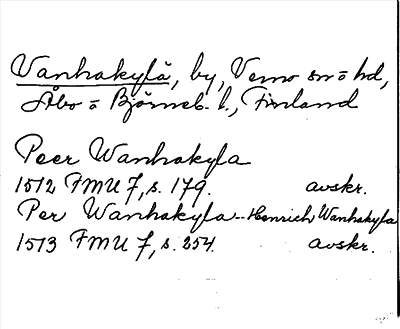 Vanhakylä, by, Vemo sn o hd,
Åbo o Björneb. l., Finland
Peer Wanhakyla
1512 FMU 7, s. 179. avskr.
Per Wanhakyla -- Henrich Wanhakyla
1513 FMU 7, s. 254. avskr.